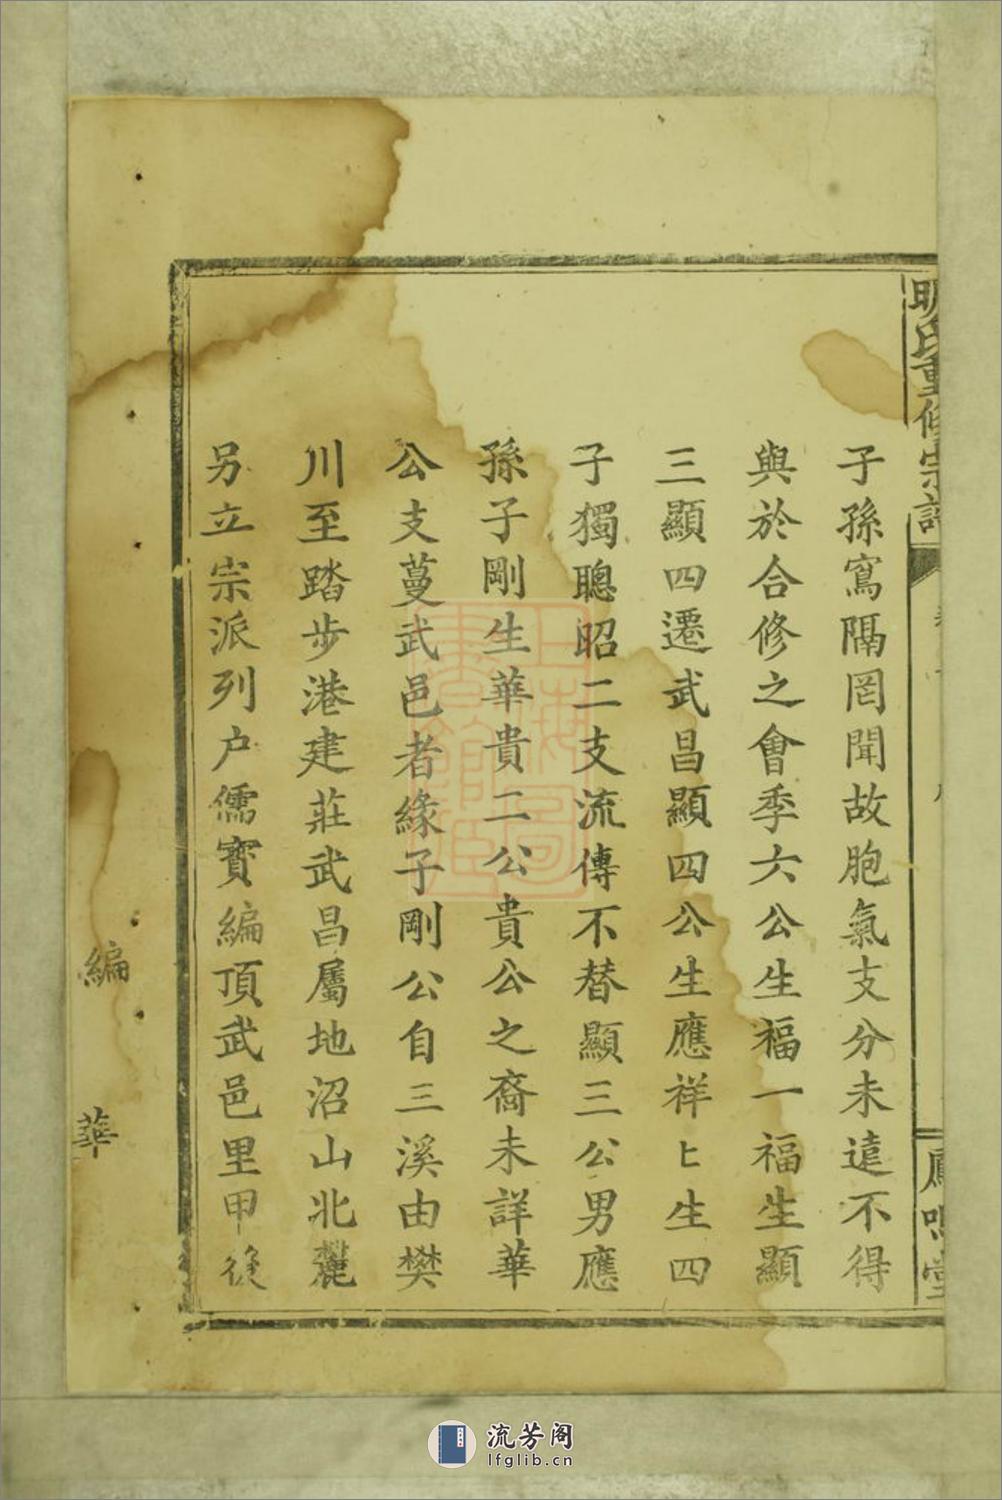 明氏重修宗譜
鳳鳴堂
子孫窵隔罔聞故胞氣支分未遠不得
與於合修之會季六公生福一福生顯
三顯四遷武昌顯四公生應祥ヒ生四
子獨聰昭二支流傳不替顯三公男應
孫子剛生華貴二公貴公之裔未詳華
公支蔓武邑者緣子剛公自三溪由樊
川至踏步港建莊武昌屬地沼山北麓
另立宗派列户儒寳編頂武邑里甲後
編
華
上海圖書館藏
流芳阁
lfglib.cn